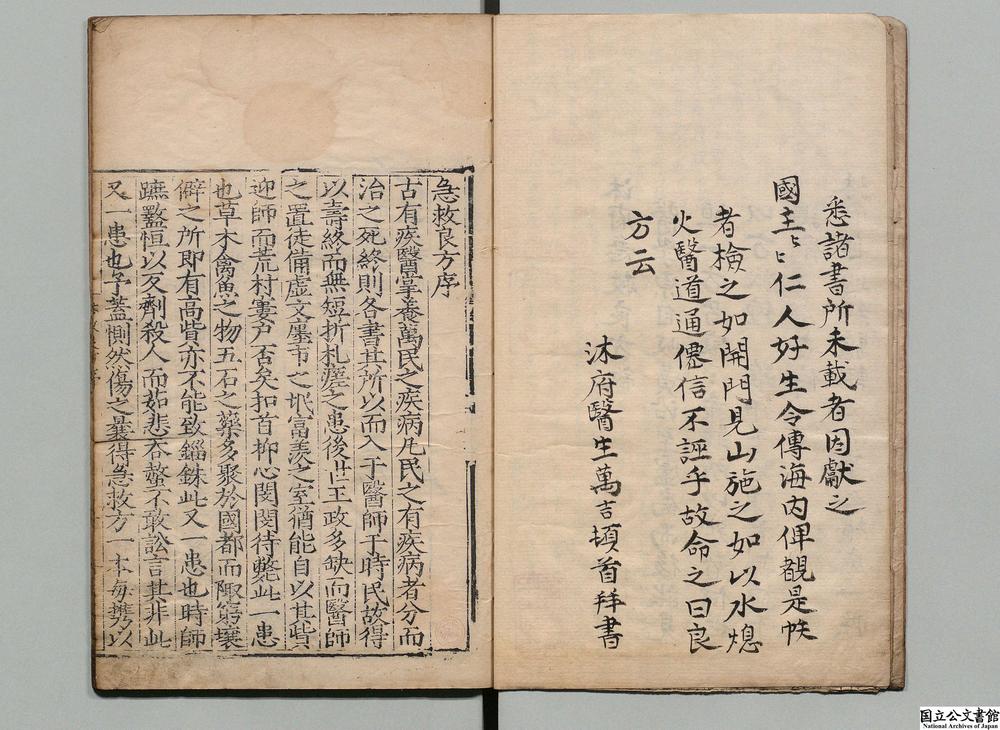 悉諸書所未載者因獻之
國主〻仁人好生令傳海内俾覩是帙
者檢之如開門見山施之如以水熄
火醫道通僊信不誣乎故命之曰良
方云
沐府醫生萬吉頓首拜書
急救良方序
古有疾醫掌養萬民之疾病凡民之有疾病者分而
治之死終則各書其所以而入于醫師于時民故得
以壽終而無短折札瘥之患後世王政多缺而醫師
之置徒備虛文廛市之氓富羨之室猶能自以其貲
迎師而荒村窶户否矣扣首抑心閔閔待斃此一患
也草木禽魚之物五石之藥多聚於國都而陬窮壤
僻之所即有高貲亦不能致錙銖此又一患也時師
蹠盭恒以反劑殺人而茹悲吞螫不敢訟言其非此
又一患也予蓋惻然傷之曩得急救方一本每携以
国立公文書館
National Archives of Japan